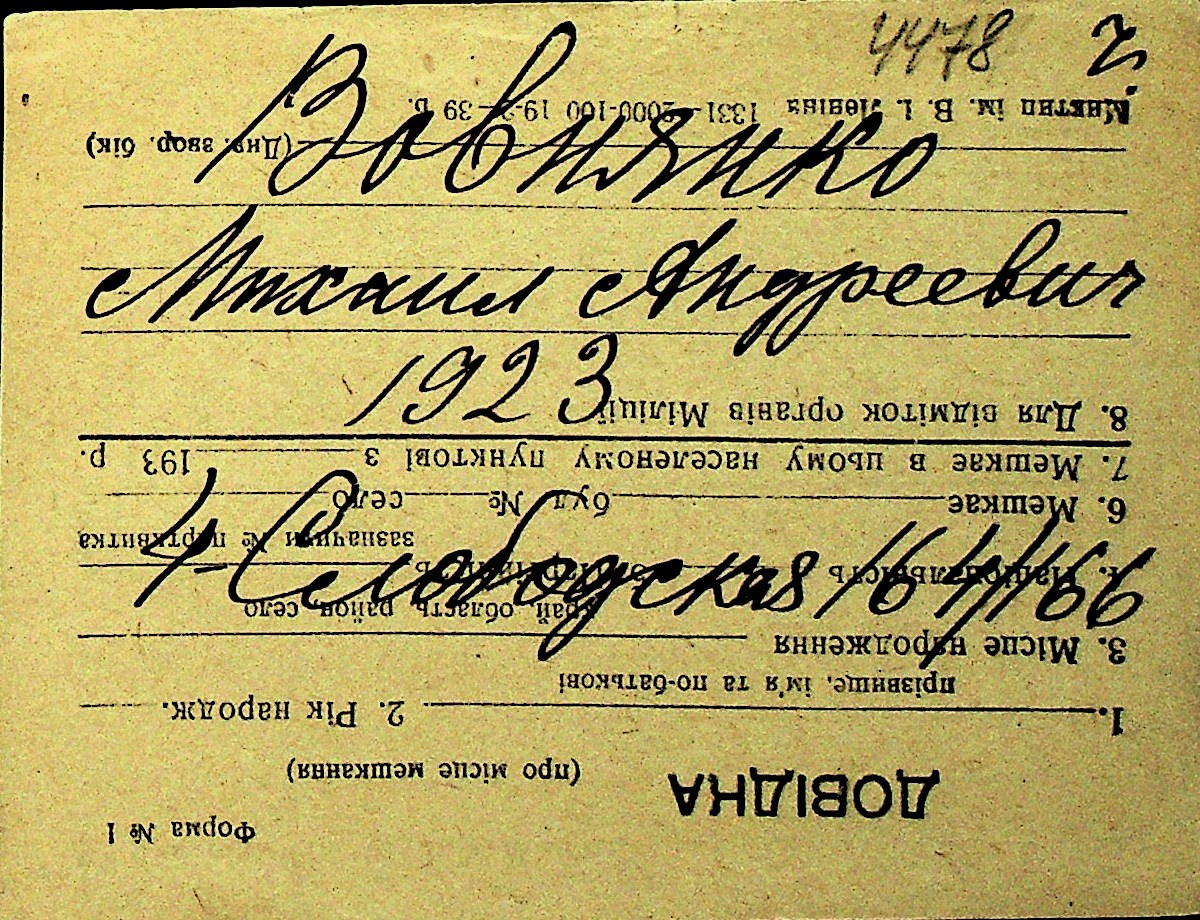 4478
Вовнянко
Михаил Андреевич
1923
4-Слободская 16
Форма № 1
ДОВІДНА
(про місце мешкання)
1. 2. Рік народж.
прізвище, ім'я та по-батькові
3. Місце народження
край, область, район, село
Національність Партійність
зазначити № партквитка
6. Мешкає вул № село
7. Мешкає в цьому населеному пунктові з 193 р.
8. Для відміток органів Міліції
(Див. звор. бік)
ім. В. І. Леніна 1331—2000-100 19 39 р.